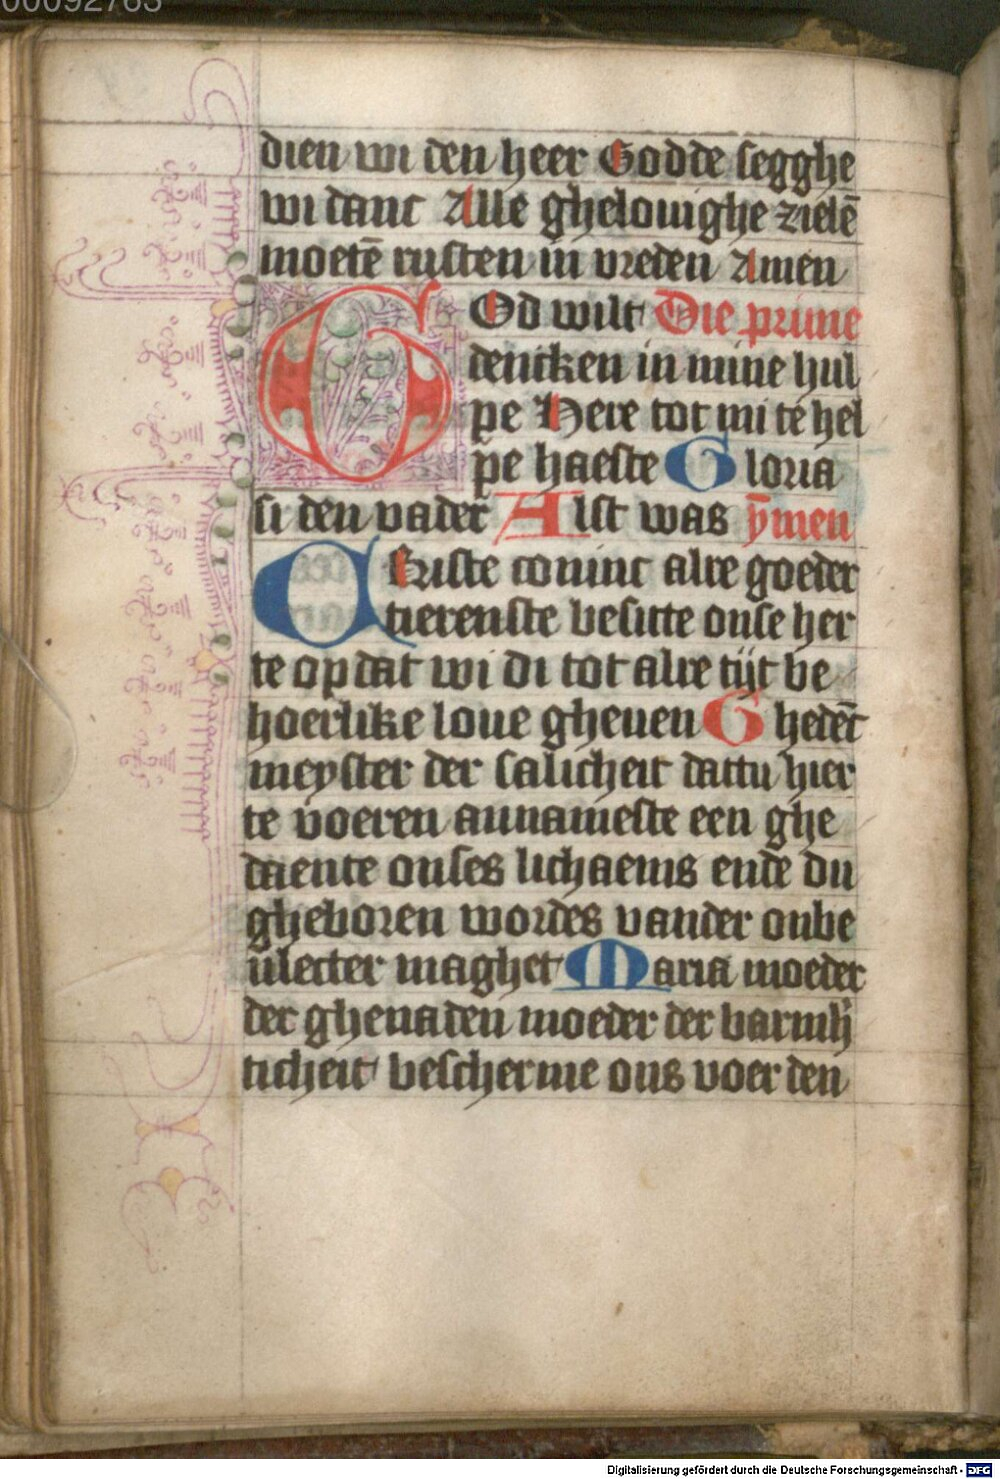 00092763
dien wi den heer Godde segghe
wi danc Alle ghelouighe zielē
moetē rusten in vreden Amen
GOd wilt Die prime
dencken in mine hul
pe Here tot mi te hel
pe haeste Gloria
si den vader Alst was ymen
CKriste coninc alre goeder
tierenste besitte onse her
te op dat wi di tot alre tijt be
hoerlike loue gheuen Ghedēc
meyster der salicheit dattu hier
te voeren annameste een ghe
daente onses lichaems ende du
gheboren wordes vander onbe
ulecter maghet Maria moeder
der ghenaden moeder der barmh̄
ticheit bescherme ons voer den
Digitalisierung gefördert durch die Deutsche Forschungsgemeinschaft - DFG